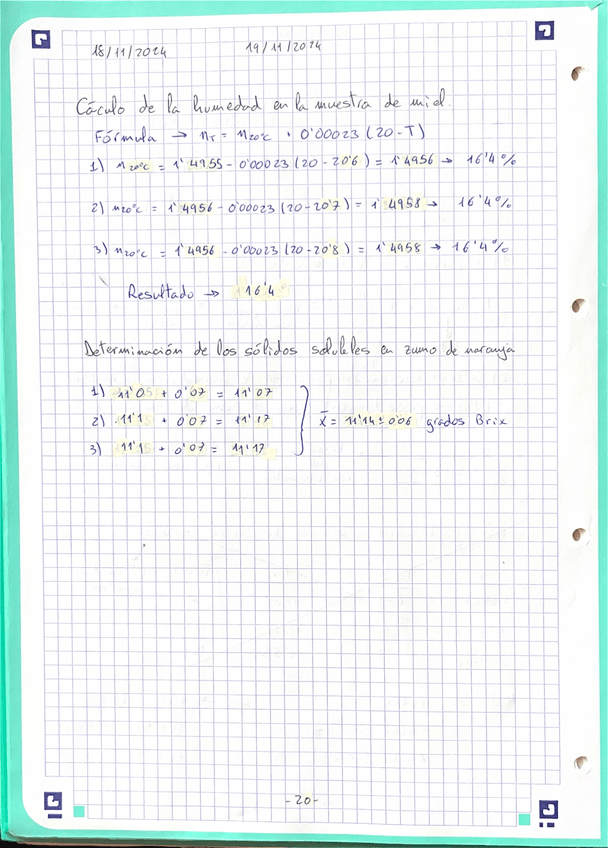 18/11/2024 19/11/2024
Cáculo de la humedad en la muestra de miel.
Fórmula → n_T = n20ºc + 0'00023 (20-T)
1) n20ºc = 1'4955 - 0'00023 (20-20'6) = 1'4956 → 16'4%
2) n20ºc = 1'4956 - 0'00023 (20-20'7) = 1'4958 → 16'4%
3) n20ºc = 1'4956 - 0'00023 (20-20'8) = 1'4958 → 16'4%
Resultado → 16'4
Determinación de los sólidos solubles en zumo de naranja
1) 11'0 + 0'07 = 11'07
2) 11'1 + 0'07 = 11'17
3) 11'1 + 0'07 = 11'17
x̄ = 11'14 ± 0'06 grados Brix
-20-